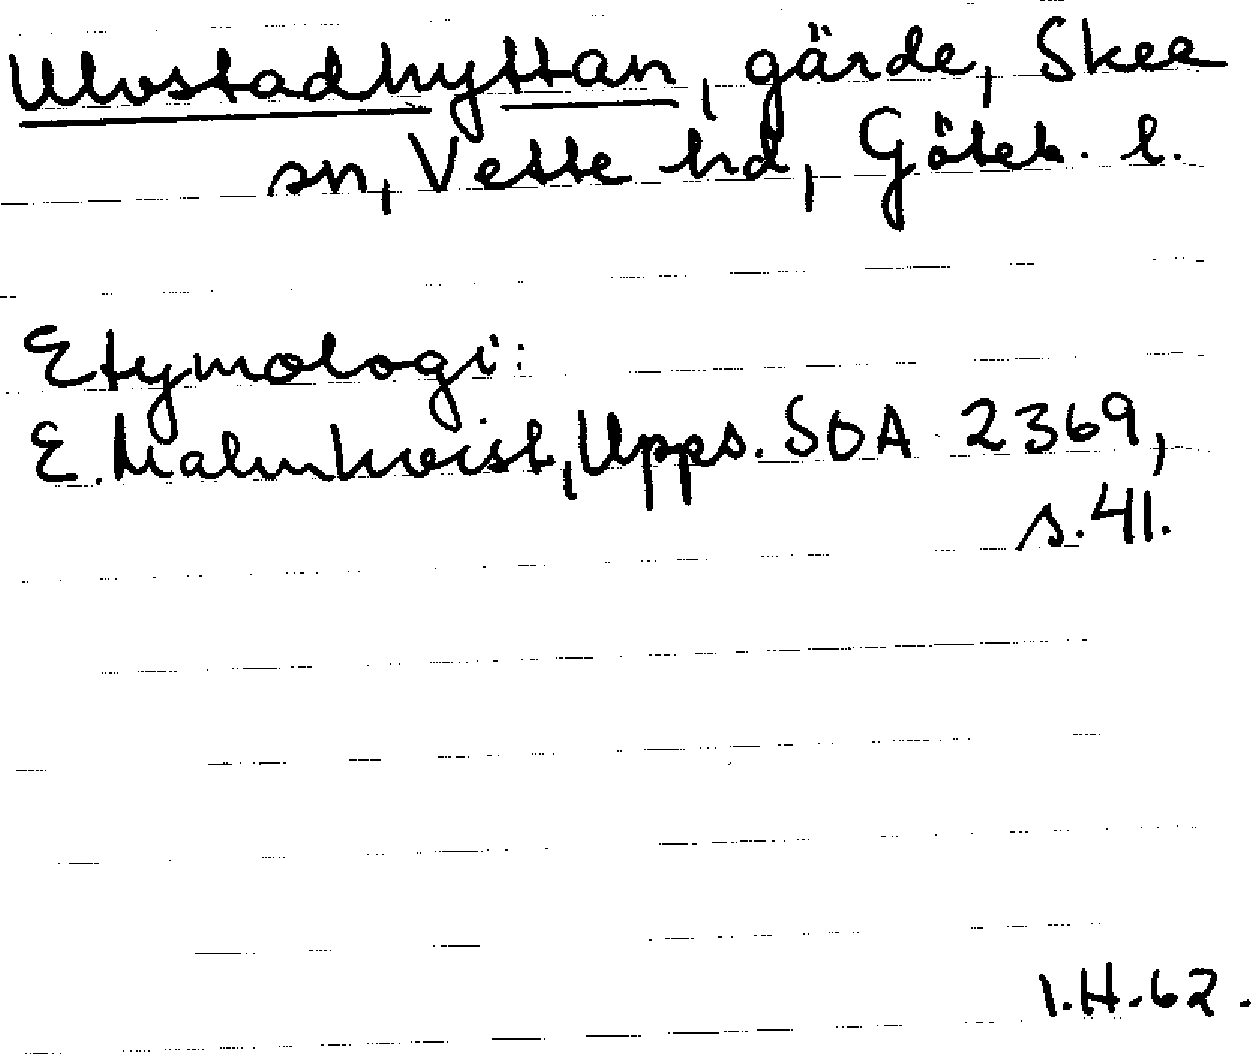 Ulvstadhyttan, gärde, Skee
sn, Vette hd, Göteb. l.
Etymologi:
E. Malmkvist, Upps. SOA 2369,
s. 41.
I.H. 62.